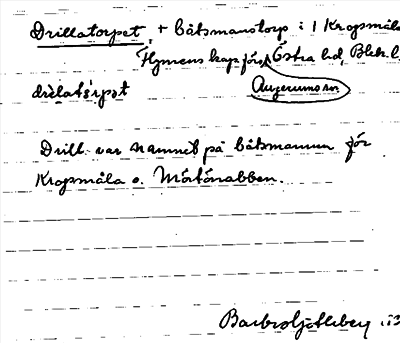 Drillatorpet, + båtsmanstorp i 1 Kropsmåla
Hjmens kap för, Östra hd, Blek. l
drɩlatɔrpət Augerums sn
Drill var namnet på båtsmannen för
Kropsmåla o. Mörtönabben.
Barbro